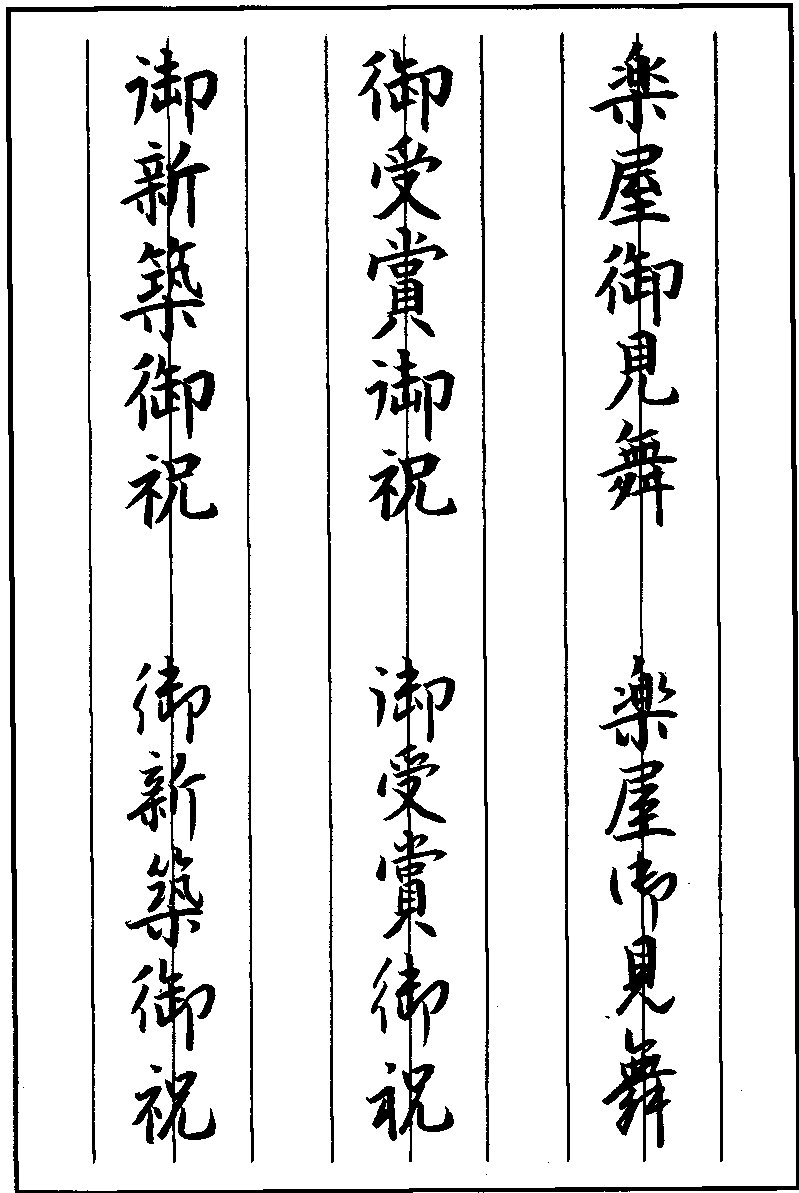 楽屋御見舞　楽屋御見舞
御受賞御祝　御受賞御祝
御新築御祝　御新築御祝